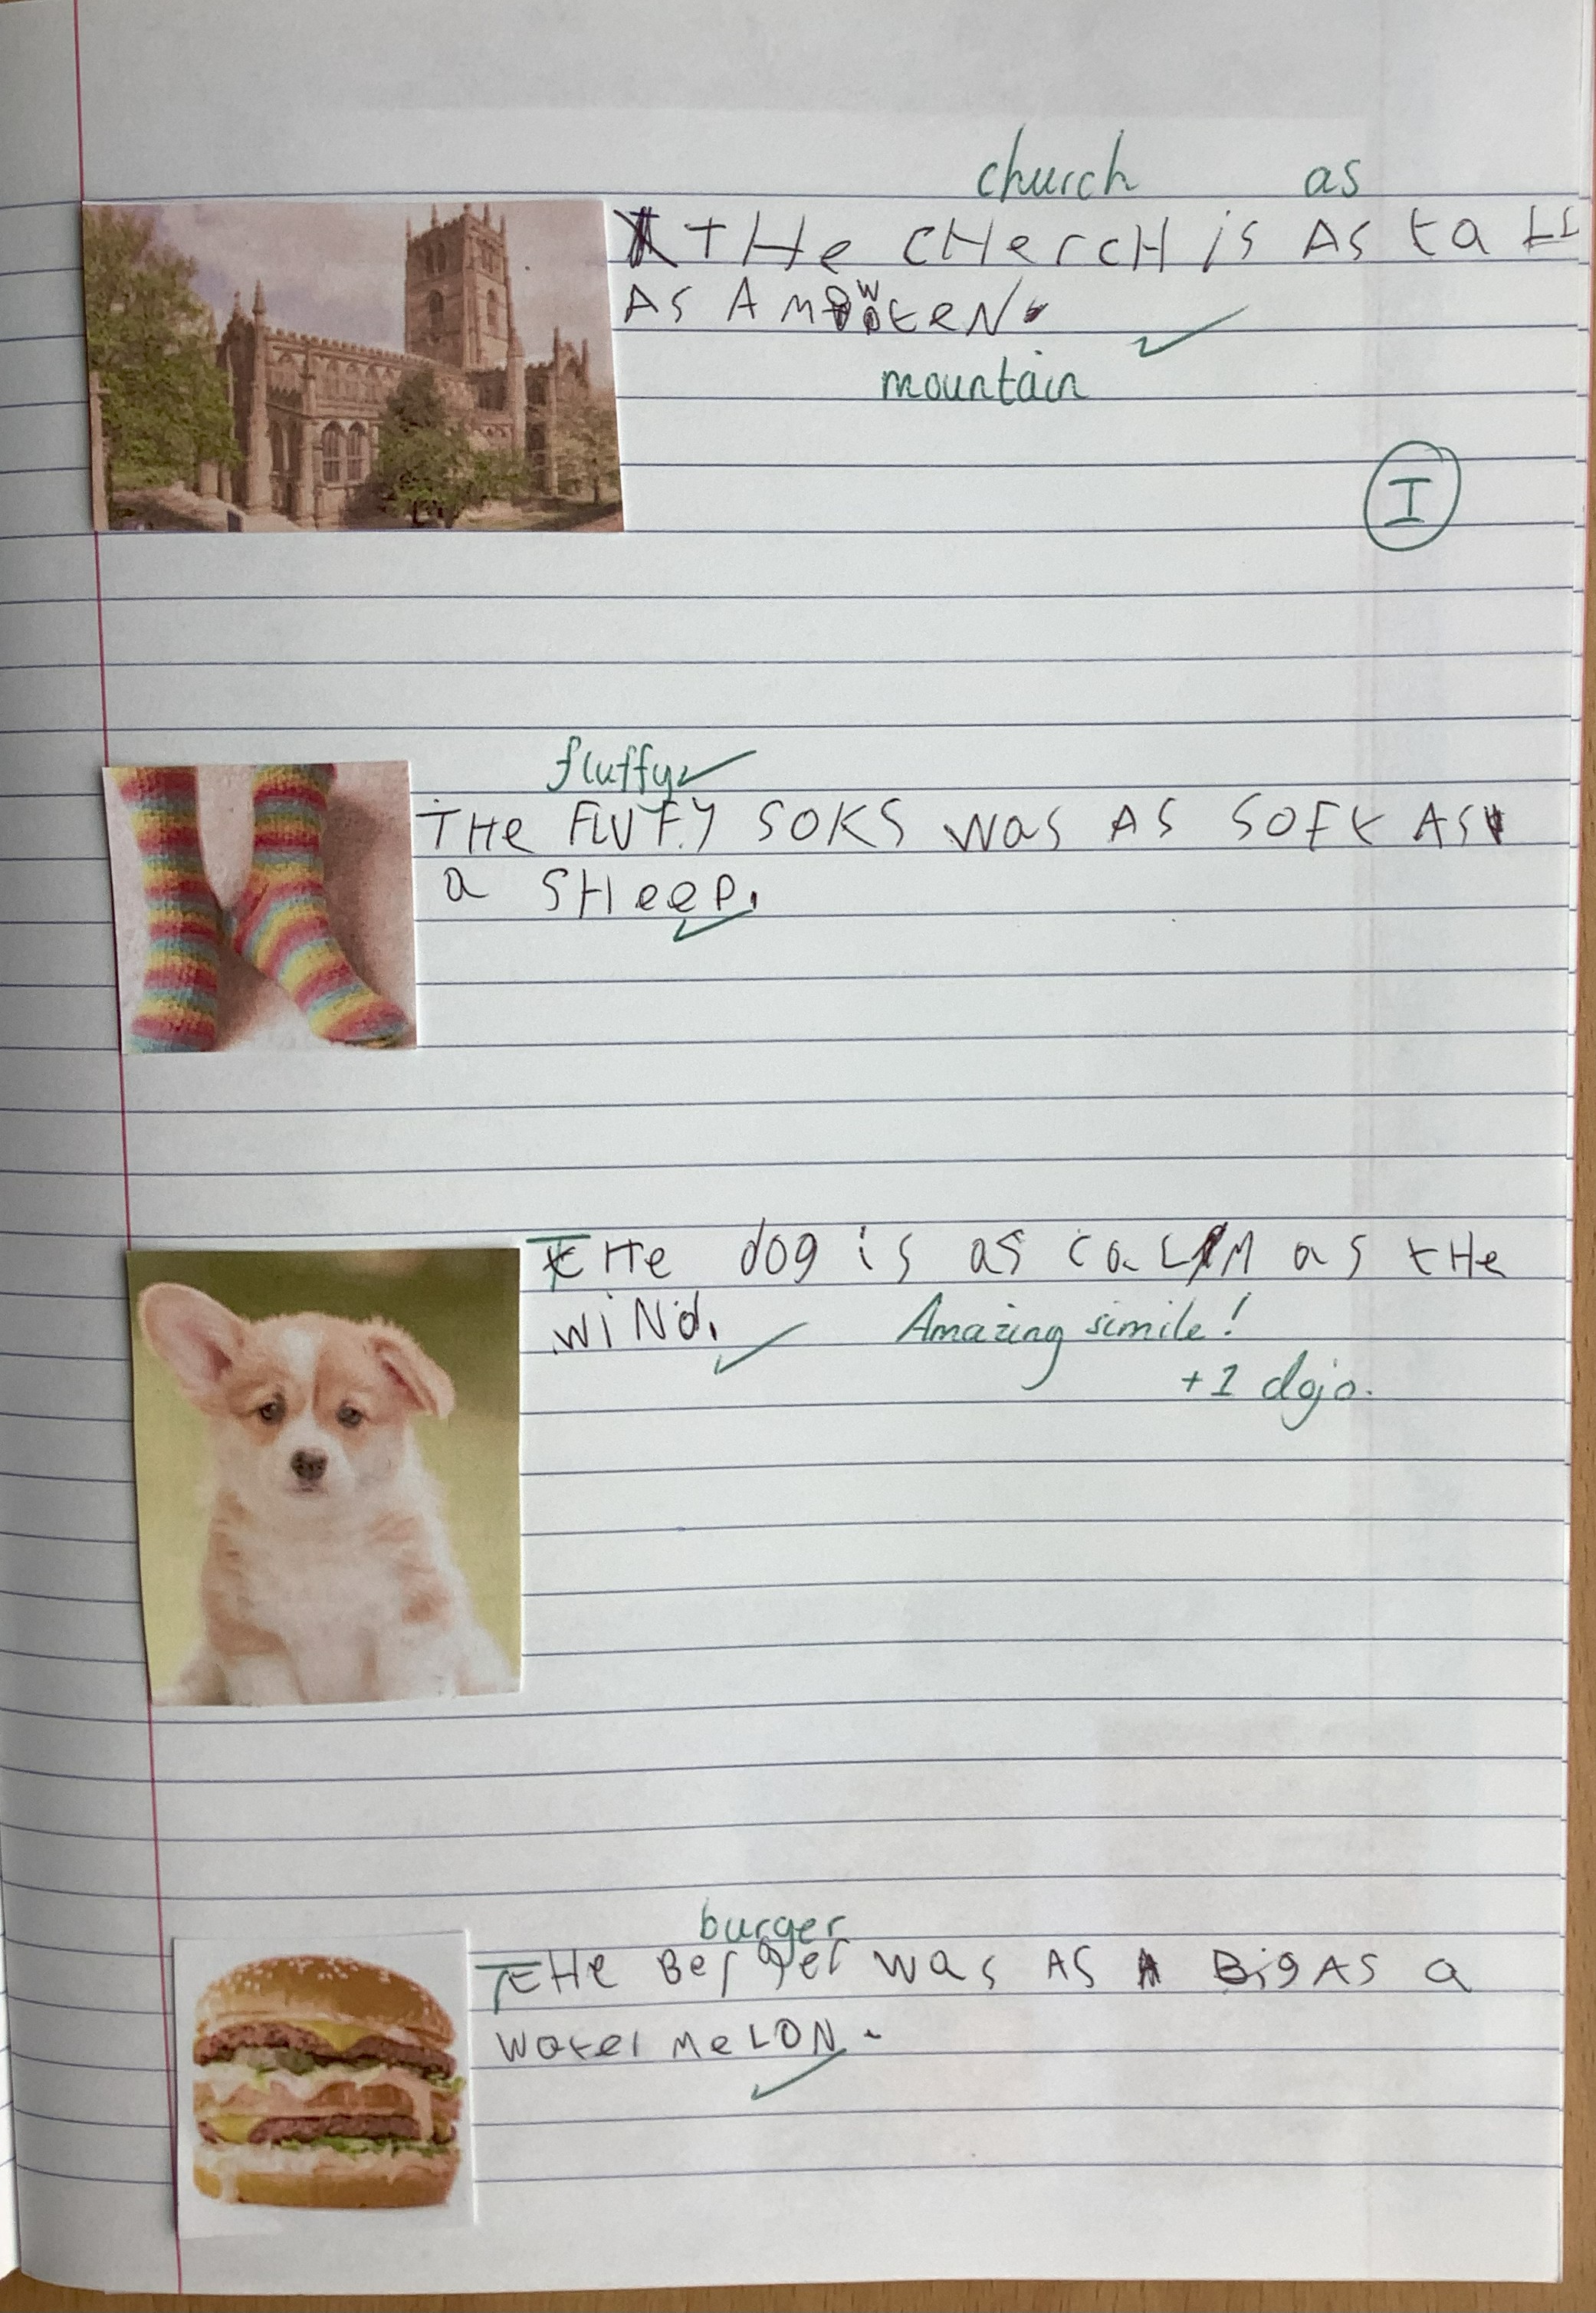 church as
THe CHercH is As taLL
As A mowteN.
mountain
I
fluffy
THe FLUFFY SOKS was AS SOFt AS
a SHeep.
tHe dog is as caLM as tHe
wiNd.
Amazing simile!
+1 dojo.
burger
tHe Berger was AS Big AS a
water meLON.